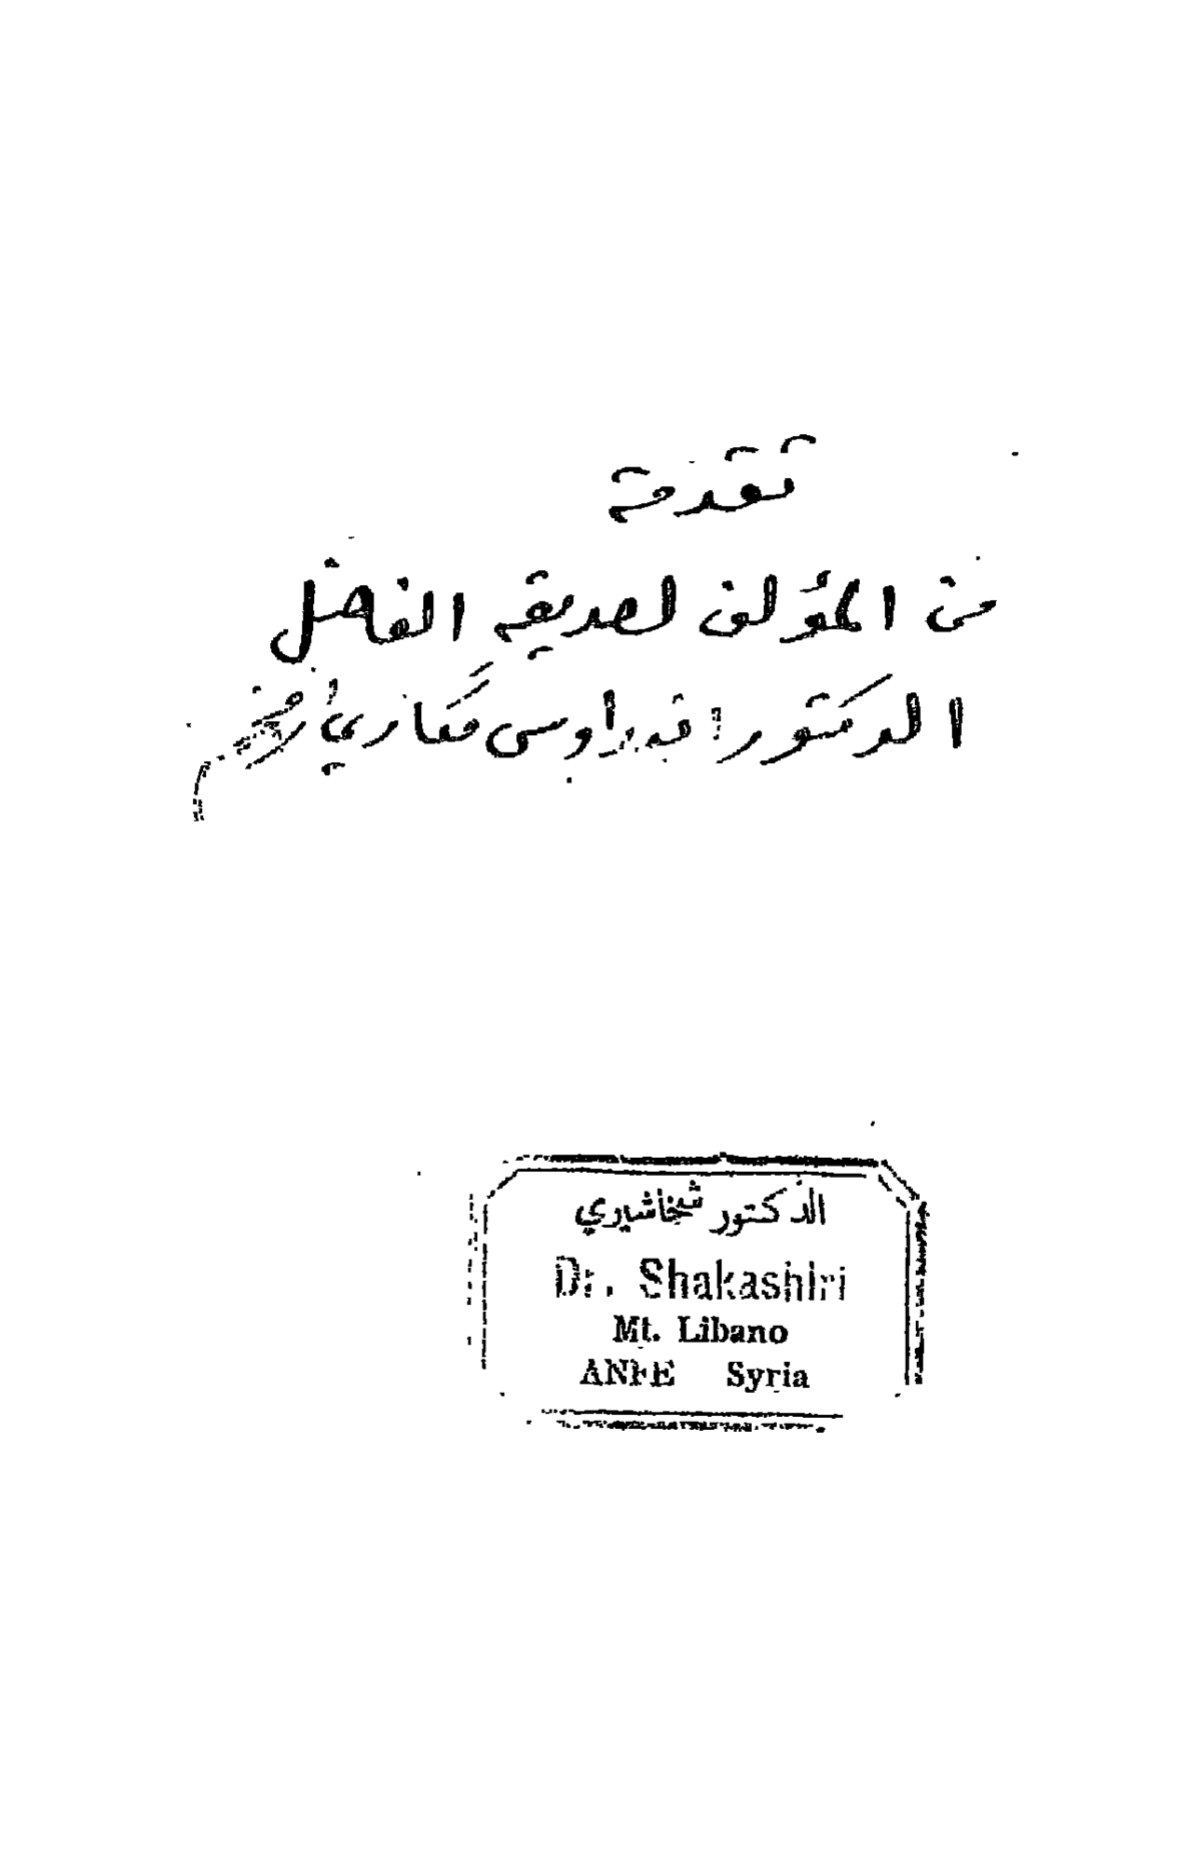 تقدمة
من المؤلف لصديقه الفاضل
الدكتور اندراوس معكاري
الدكتور شخاشيري
Dr. Shakashiri
Mt. Libano
ANFE Syria